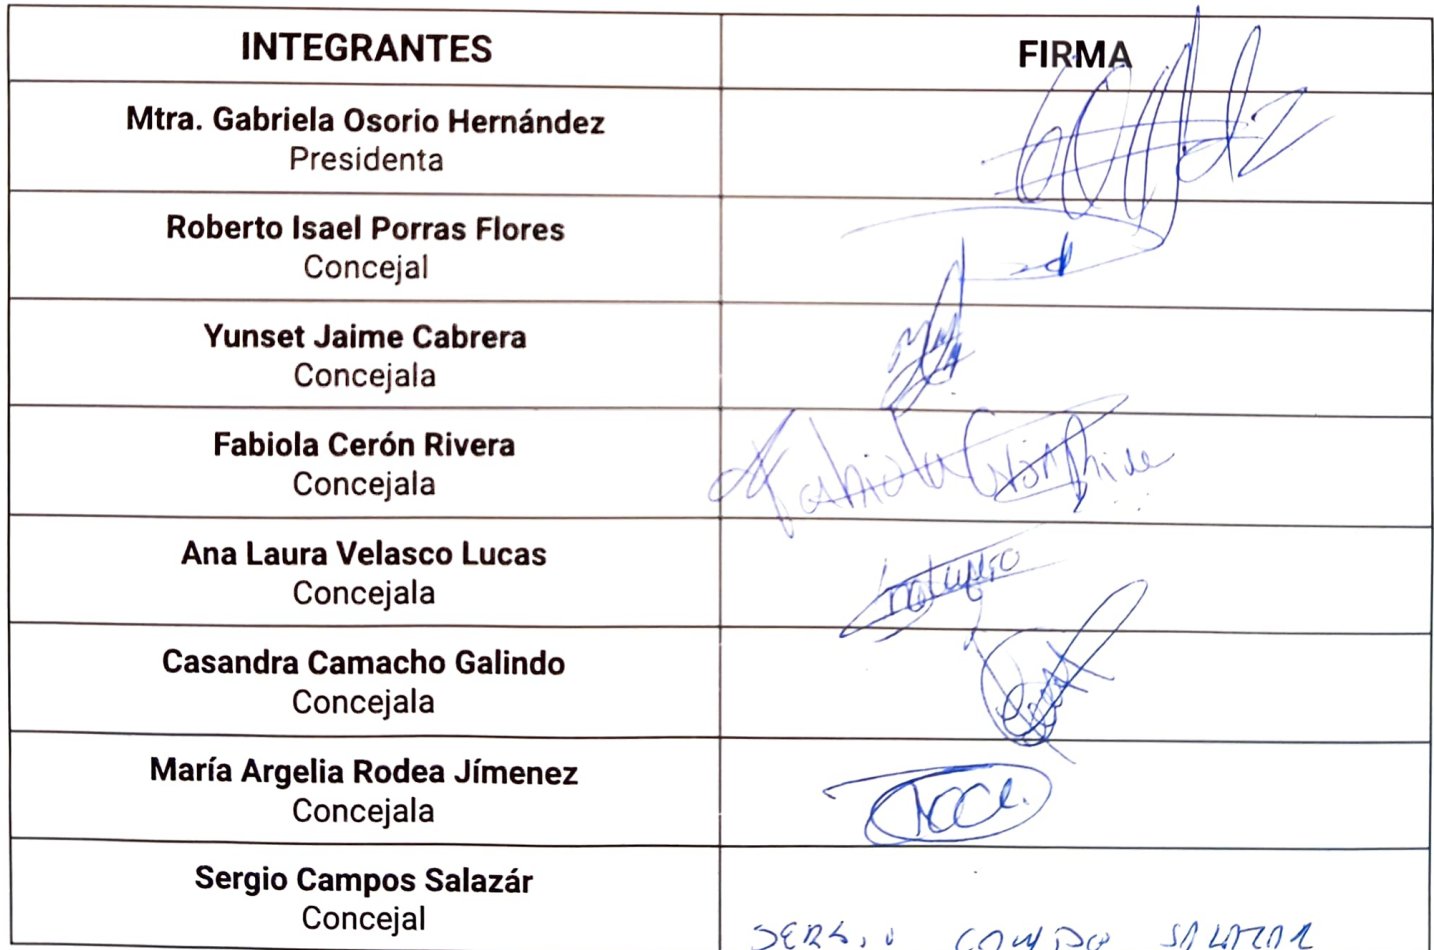 INTEGRANTES FIRMA
Mtra. Gabriela Osorio Hernández
Presidenta
Roberto Isael Porras Flores
Concejal
Yunset Jaime Cabrera
Concejala
Fabiola Cerón Rivera
Concejala
Fabiola
Ana Laura Velasco Lucas
Concejala
Casandra Camacho Galindo
Concejala
María Argelia Rodea Jímenez
Concejala
Sergio Campos Salazár
Concejal
SALAZAR